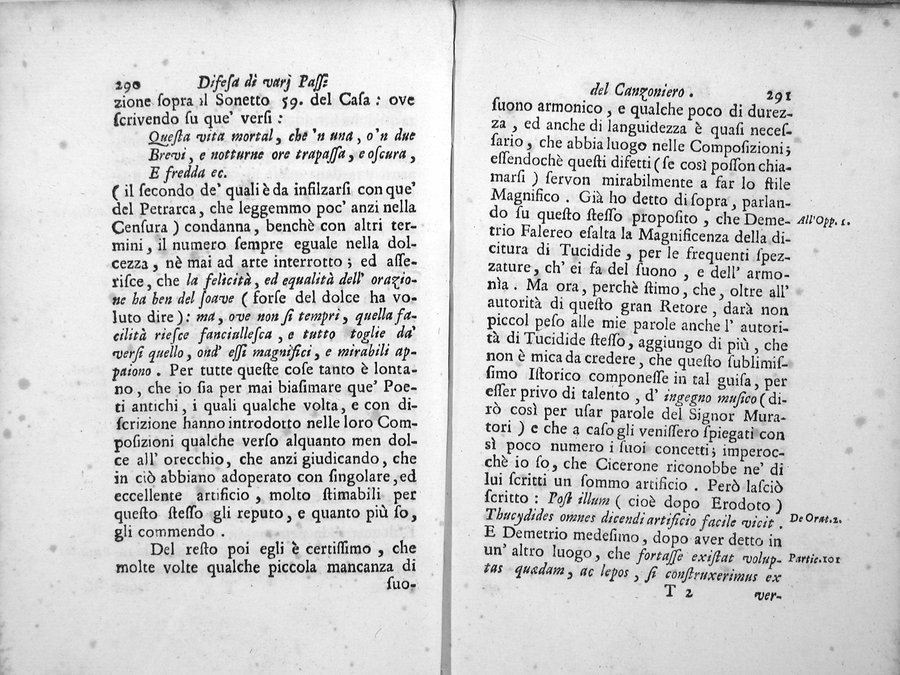 290 Difeſa di varj Paſſi
zione ſopra il Sonetto 59. del Caſa : ove
ſcrivendo ſu que' verſi :
Queſta vita mortal, che 'n una, o 'n due
Brevi, e notturne ore trapaſſa, e oſcura,
E fredda ec.
( il ſecondo de' quali è da infilzarſi con que'
del Petrarca, che leggemmo poc' anzi nella
Cenſura ) condanna, benchè con altri ter-
mini, il numero ſempre eguale nella dol-
cezza, nè mai ad arte interrotto ; ed aſſe-
riſce, che la felicità, ed equalità dell' orazio-
ne ha ben del ſoave ( forſe del dolce ha vo-
luto dire ) : ma, ove non ſi tempri, quella fa-
cilità rieſce fanciulleſca, e tutto toglie da'
verſi quello, ond' eſſi magnifici, e mirabili ap-
paiono . Per tutte queſte coſe tanto è lonta-
no, che io ſia per mai biaſimare que' Poe-
ti antichi, i quali qualche volta, e con di-
ſcrizione hanno introdotto nelle loro Com-
poſizioni qualche verſo alquanto men dol-
ce all' orecchio, che anzi giudicando, che
in ciò abbiano adoperato con ſingolare, ed
eccellente artificio, molto ſtimabili per
queſto ſteſſo gli reputo, e quanto più ſo,
gli commendo .
Del reſto poi egli è certiſſimo, che
molte volte qualche piccola mancanza di
ſuo-
del Canzoniero . 291
ſuono armonico, e qualche poco di durez-
za, ed anche di languidezza è quaſi neceſ-
ſario, che abbia luogo nelle Compoſizioni ;
eſſendochè queſti difetti ( ſe così poſſon chia-
marſi ) ſervon mirabilmente a far lo ſtile
Magnifico . Già ho detto di ſopra, parlan-
do ſu queſto ſteſſo propoſito, che Deme- All'Opp. 1.
trio Falereo eſalta la Magnificenza della di-
citura di Tucidide, per le frequenti ſpez-
zature, ch' ei fa del ſuono, e dell' armo-
nìa . Ma ora, perchè ſtimo, che, oltre all'
autorità di queſto gran Retore, darà non
piccol peſo alle mie parole anche l' autori-
tà di Tucidide ſteſſo, aggiungo di più, che
non è mica da credere, che queſto ſublimiſ-
ſimo Iſtorico componeſſe in tal guiſa, per
eſſer privo di talento, d' ingegno muſico ( di-
rò così per uſar parole del Signor Mura-
tori ) e che a caſo gli veniſſero ſpiegati con
sì poco numero i ſuoi concetti ; imperoc-
chè io ſo, che Cicerone riconobbe ne' di
lui ſcritti un ſommo artificio . Però laſciò
ſcritto : Poſt illum ( cioè dopo Erodoto )
Thucydides omnes dicendi artificio facile vicit . De Orat.2.
E Demetrio medeſimo, dopo aver detto in
un' altro luogo, che fortaſſe exiſtat volup- Partic.101
tas quædam, ac lepos, ſi conſtruxerimus ex
T 2 ver-